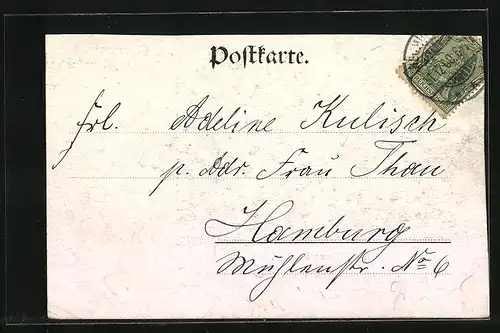 Postkarte.
Frl. Adeline Kulisch
p. Adr. Frau Thau
Hamburg
Mühlenstr. No 6